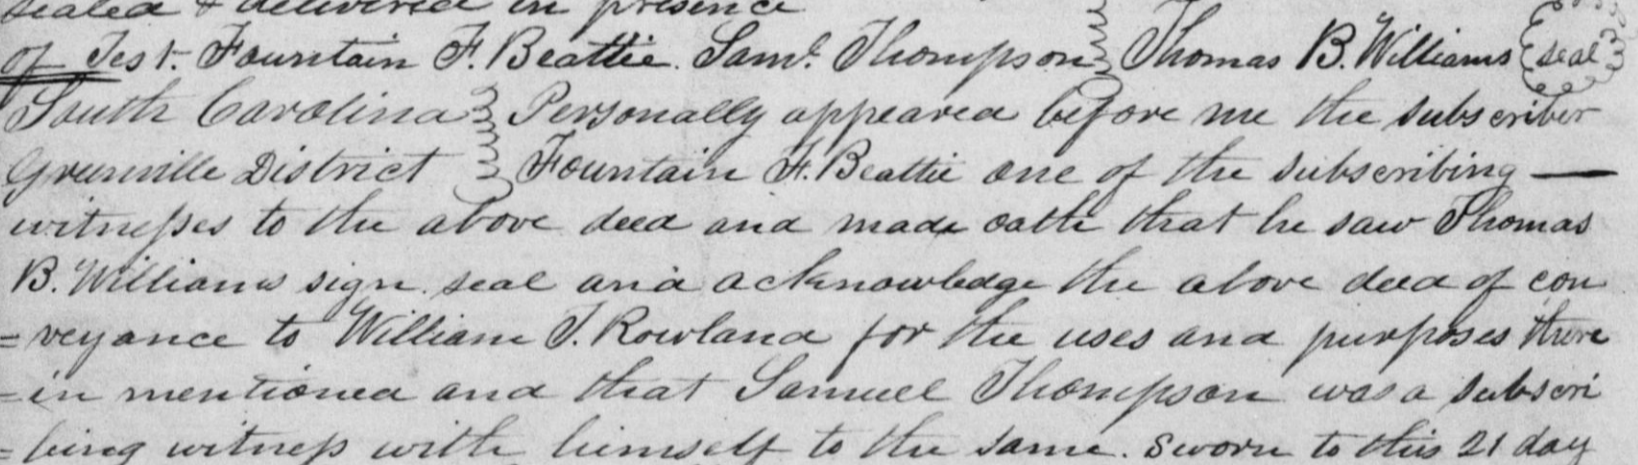 sealed & delivered in presence
of Test. Fountain F. Beattie. Saml. Thompson Thomas B. Williams (seal)
South Carolina Personally appeared before me the subscriber
Greenville District Fountain F. Beattie one of the subscribing —
witnesses to the above deed and made oath that he saw Thomas
B. Williams sign seal and acknowledge the above deed of con
=veyance to William T. Rowland for the uses and purposes there
=in mentioned and that Samuel Thompson was a subscri
=bing witness with himself to the same. Sworn to this 21 day